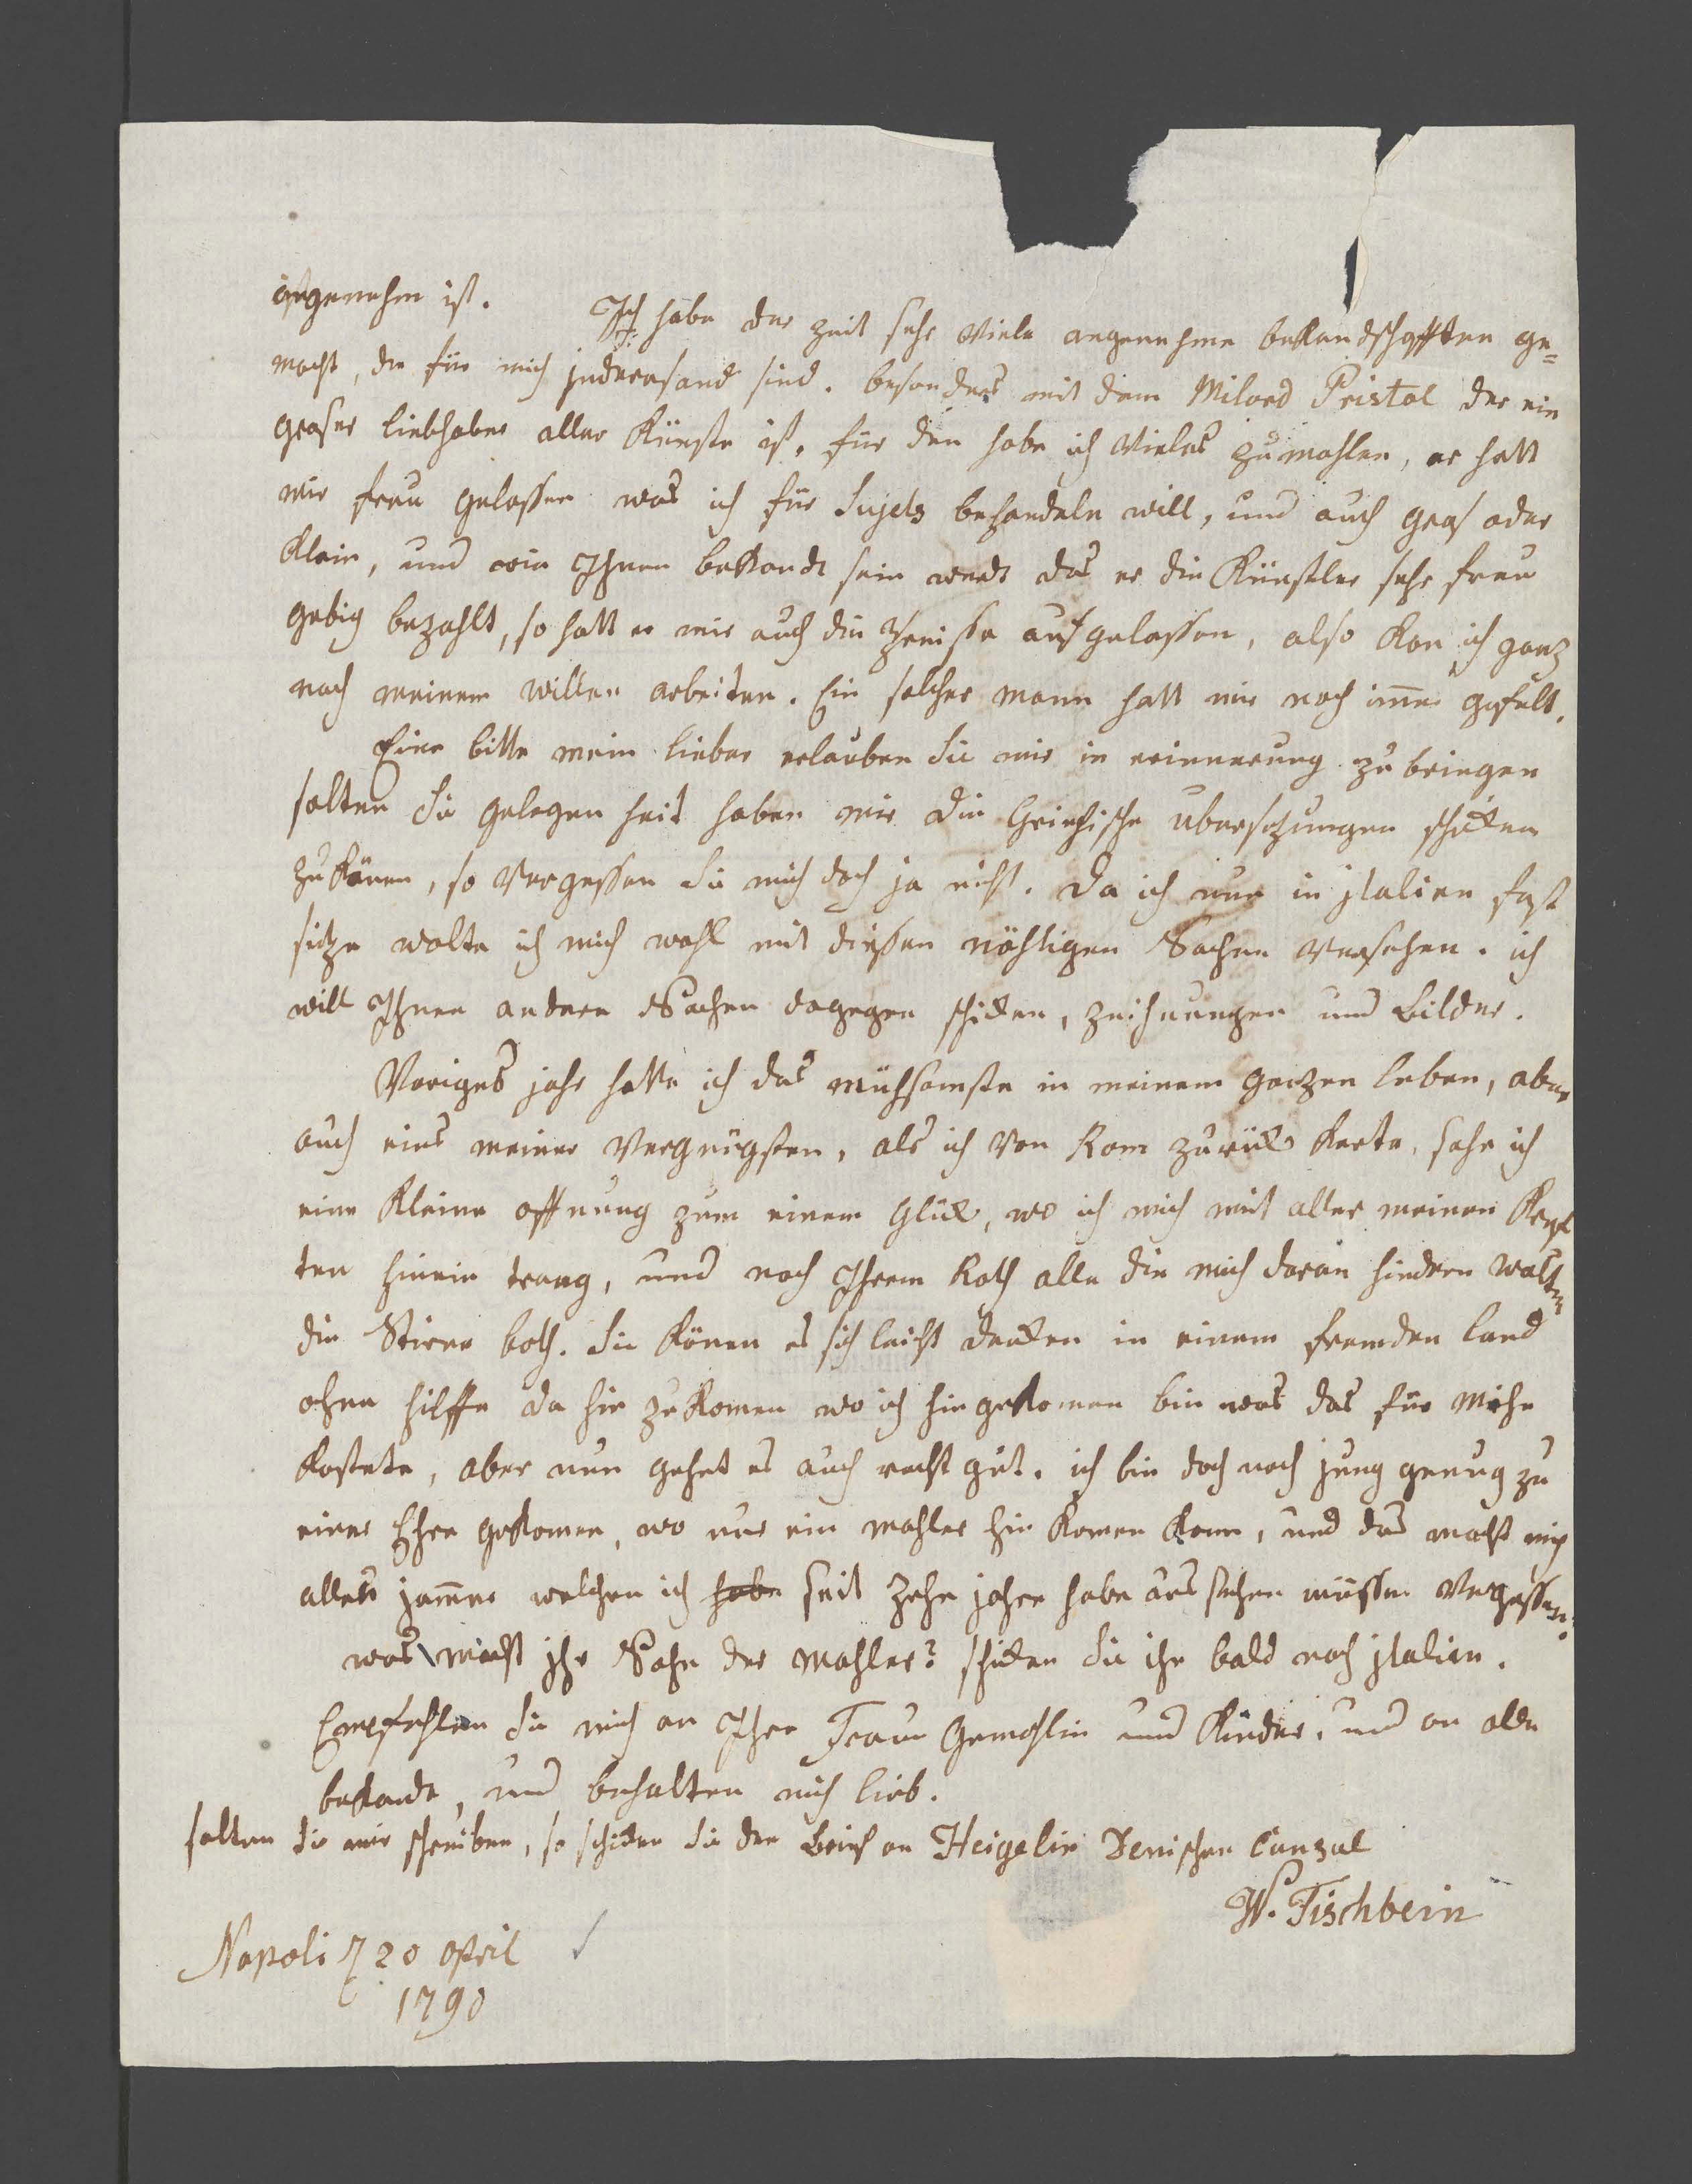 angenehm ist. Ich habe der zeit sehr viele angenehme bekandschafften ge=
macht, die für mich jnderesand sind. besonders mit dem Milord Pristol der ein
groser liebhaber aller Künste ist, für den habe ich vieles zu mahlen, er hatt
mir freu gelassen was ich für Sujets behandeln will, und auch gros oder
Klein, und wie Jhnen bekandt sein werdt das er die Künstler sehr freu
gebig bezahlt, so hatt er mir auch die Preisse auf gelassen, also kan ich ganz
nach meinem willen arbeiten. Ein solcher mann hatt mir noch imer gefelt.
Eine bitte mein lieber erlauben Sie mir in erinnerung zu bringen
solten Sie gelegen heit haben mir die Grichische ubersezungen schicken
zu könen, so vergessen Sie mich doch ja nicht. Da ich nun in jtalien fest
sitze wolte ich mich wohl mit diessen nöhtigen Sachen versehen. ich
will Jhnen andere Sachen dagegen schicken, zeichnungen und Bilder.
Voriges jahr hatte ich das mühsamste in meinem ganzen leben, aber
auch eins meiner vergnügsten, als ich von Rom zurück kerte, sahe ich
eine kleine offnung zum einem Glück, wo ich mich mit aller meinen Kref
ten hinein trang, und nach Jhrem Rath alle die mich daran hindren wolten
die Stirne both. Sie könen es sich leicht denken in einem fremden land
ohne hilffe da hin zu komen wo ich hin gekomen bin was das für Mihe
kostete, aber nun gehet es auch recht gut. ich bin doch noch jung genug zu
einer Ehre gekomen, wo nur ein mahler hin komen kann, und das macht mich
allen jammer welchen ich habe seit zehn jahre habe aus stehen müssen vergessen.
was macht jhr Sohn der Mahler? schicken Sie ihn bald nach jtalien.
Empfehlen Sie mich an Jhre Frau Gemahlin und Kinder, und an alle
bekande, und behalten mich lieb.
solten Sie mir schreiben, so schicken Sie den Brief an Heigelin Denischen Consul
W. Tischbein
Napoli 20 April
1790